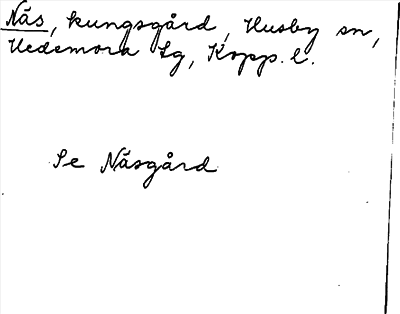 Näs, kungsgård, Husby sn,
Hedemora tg, Kopp. l.
Se Näsgård